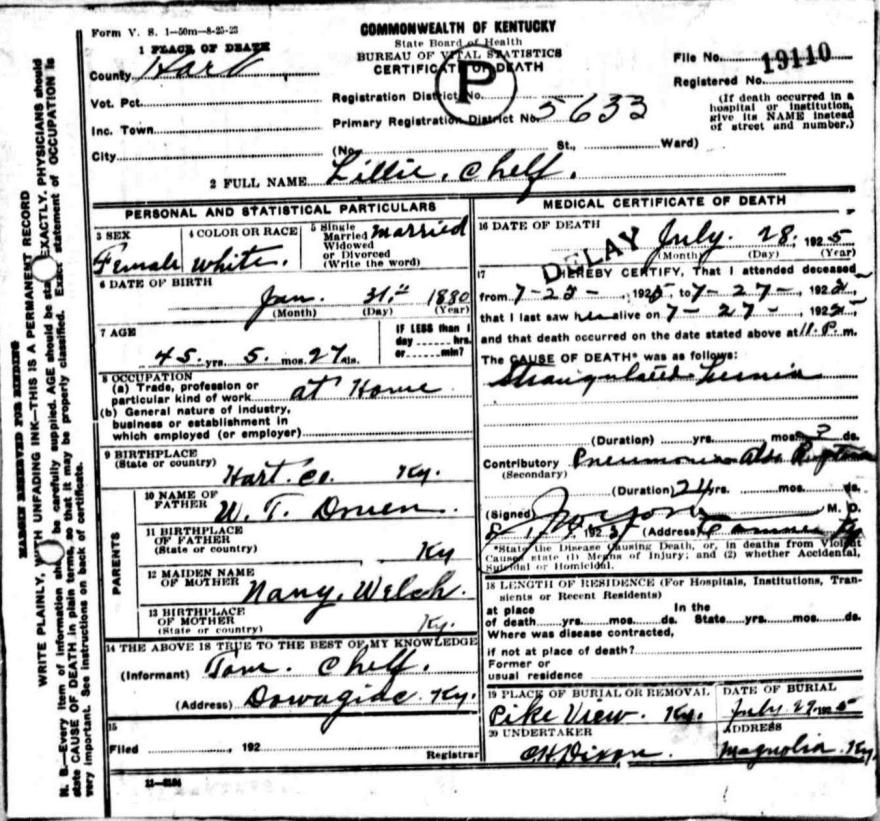 Form V. S. 1—50m—8-25-23
COMMONWEALTH OF KENTUCKY
State Board of Health
BUREAU OF VITAL STATISTICS
CERTIFICATE OF DEATH
P
File No. 19110
Registered No.
(If death occurred in a hospital or institution, give its NAME instead of street and number.)
1 PLACE OF DEATH
County Hart
Vot. Pct.
Inc. Town
City
Registration District No.
Primary Registration District No. 5633
(No. St., Ward)
2 FULL NAME Lillie. Chelf.
PERSONAL AND STATISTICAL PARTICULARS
3 SEX
Female
4 COLOR OR RACE
White.
5 Single
Married
Widowed
or Divorced
(Write the word)
married
6 DATE OF BIRTH
Jan. 31st 1880
(Month) (Day) (Year)
7 AGE
45 yrs. 5. mos. 27 ds.
IF LESS than 1
day hrs.
or min?
8 OCCUPATION
(a) Trade, profession or
particular kind of work at Home
(b) General nature of industry,
business or establishment in
which employed (or employer)
9 BIRTHPLACE
(State or country)
Hart. Co. Ky.
PARENTS
10 NAME OF
FATHER
W. T.
11 BIRTHPLACE
OF FATHER
(State or country)
Ky
12 MAIDEN NAME
OF MOTHER
Nany. Welch.
13 BIRTHPLACE
OF MOTHER
(State or country)
Ky.
14 THE ABOVE IS TRUE TO THE BEST OF MY KNOWLEDGE
(Informant) Tom. Chelf.
(Address) Dowagiac. Ky.
15
Filed , 192
Registrar
11—3184
MEDICAL CERTIFICATE OF DEATH
16 DATE OF DEATH
DELAY
July. 28, 1925
(Month) (Day) (Year)
17 I HEREBY CERTIFY, That I attended deceased
from 7-23-, 1925, to 7-27-, 192
that I last saw her alive on 7-27-, 192
and that death occurred on the date stated above at 11. P. m.
The CAUSE OF DEATH* was as follows:
Strangulated hernia
(Duration) yrs. mos. ds.
Contributory Pneumonia also
(Secondary)
(Duration) yrs. mos. ds.
(Signed) M. D.
8 1, 192 (Address) Ky
*State the Disease Causing Death, or, in deaths from Violent
Causes state (1) Means of Injury; and (2) whether Accidental,
Suicidal or Homicidal.
18 LENGTH OF RESIDENCE (For Hospitals, Institutions, Transients or Recent Residents)
at place In the
of death yrs. mos. ds. State yrs. mos. ds.
Where was disease contracted,
if not at place of death?
Former or
usual residence
19 PLACE OF BURIAL OR REMOVAL
Pike View. Ky.
DATE OF BURIAL
July 29, 1925
20 UNDERTAKER
OH Dixon.
ADDRESS
Magnolia Ky.
MARGIN RESERVED FOR BINDING
WRITE PLAINLY, WITH UNFADING INK—THIS IS A PERMANENT RECORD
N. B.—Every item of information should be carefully supplied. AGE should be stated EXACTLY. PHYSICIANS should
state CAUSE OF DEATH in plain terms, so that it may be properly classified. Exact statement of OCCUPATION is
very important. See instructions on back of certificate.